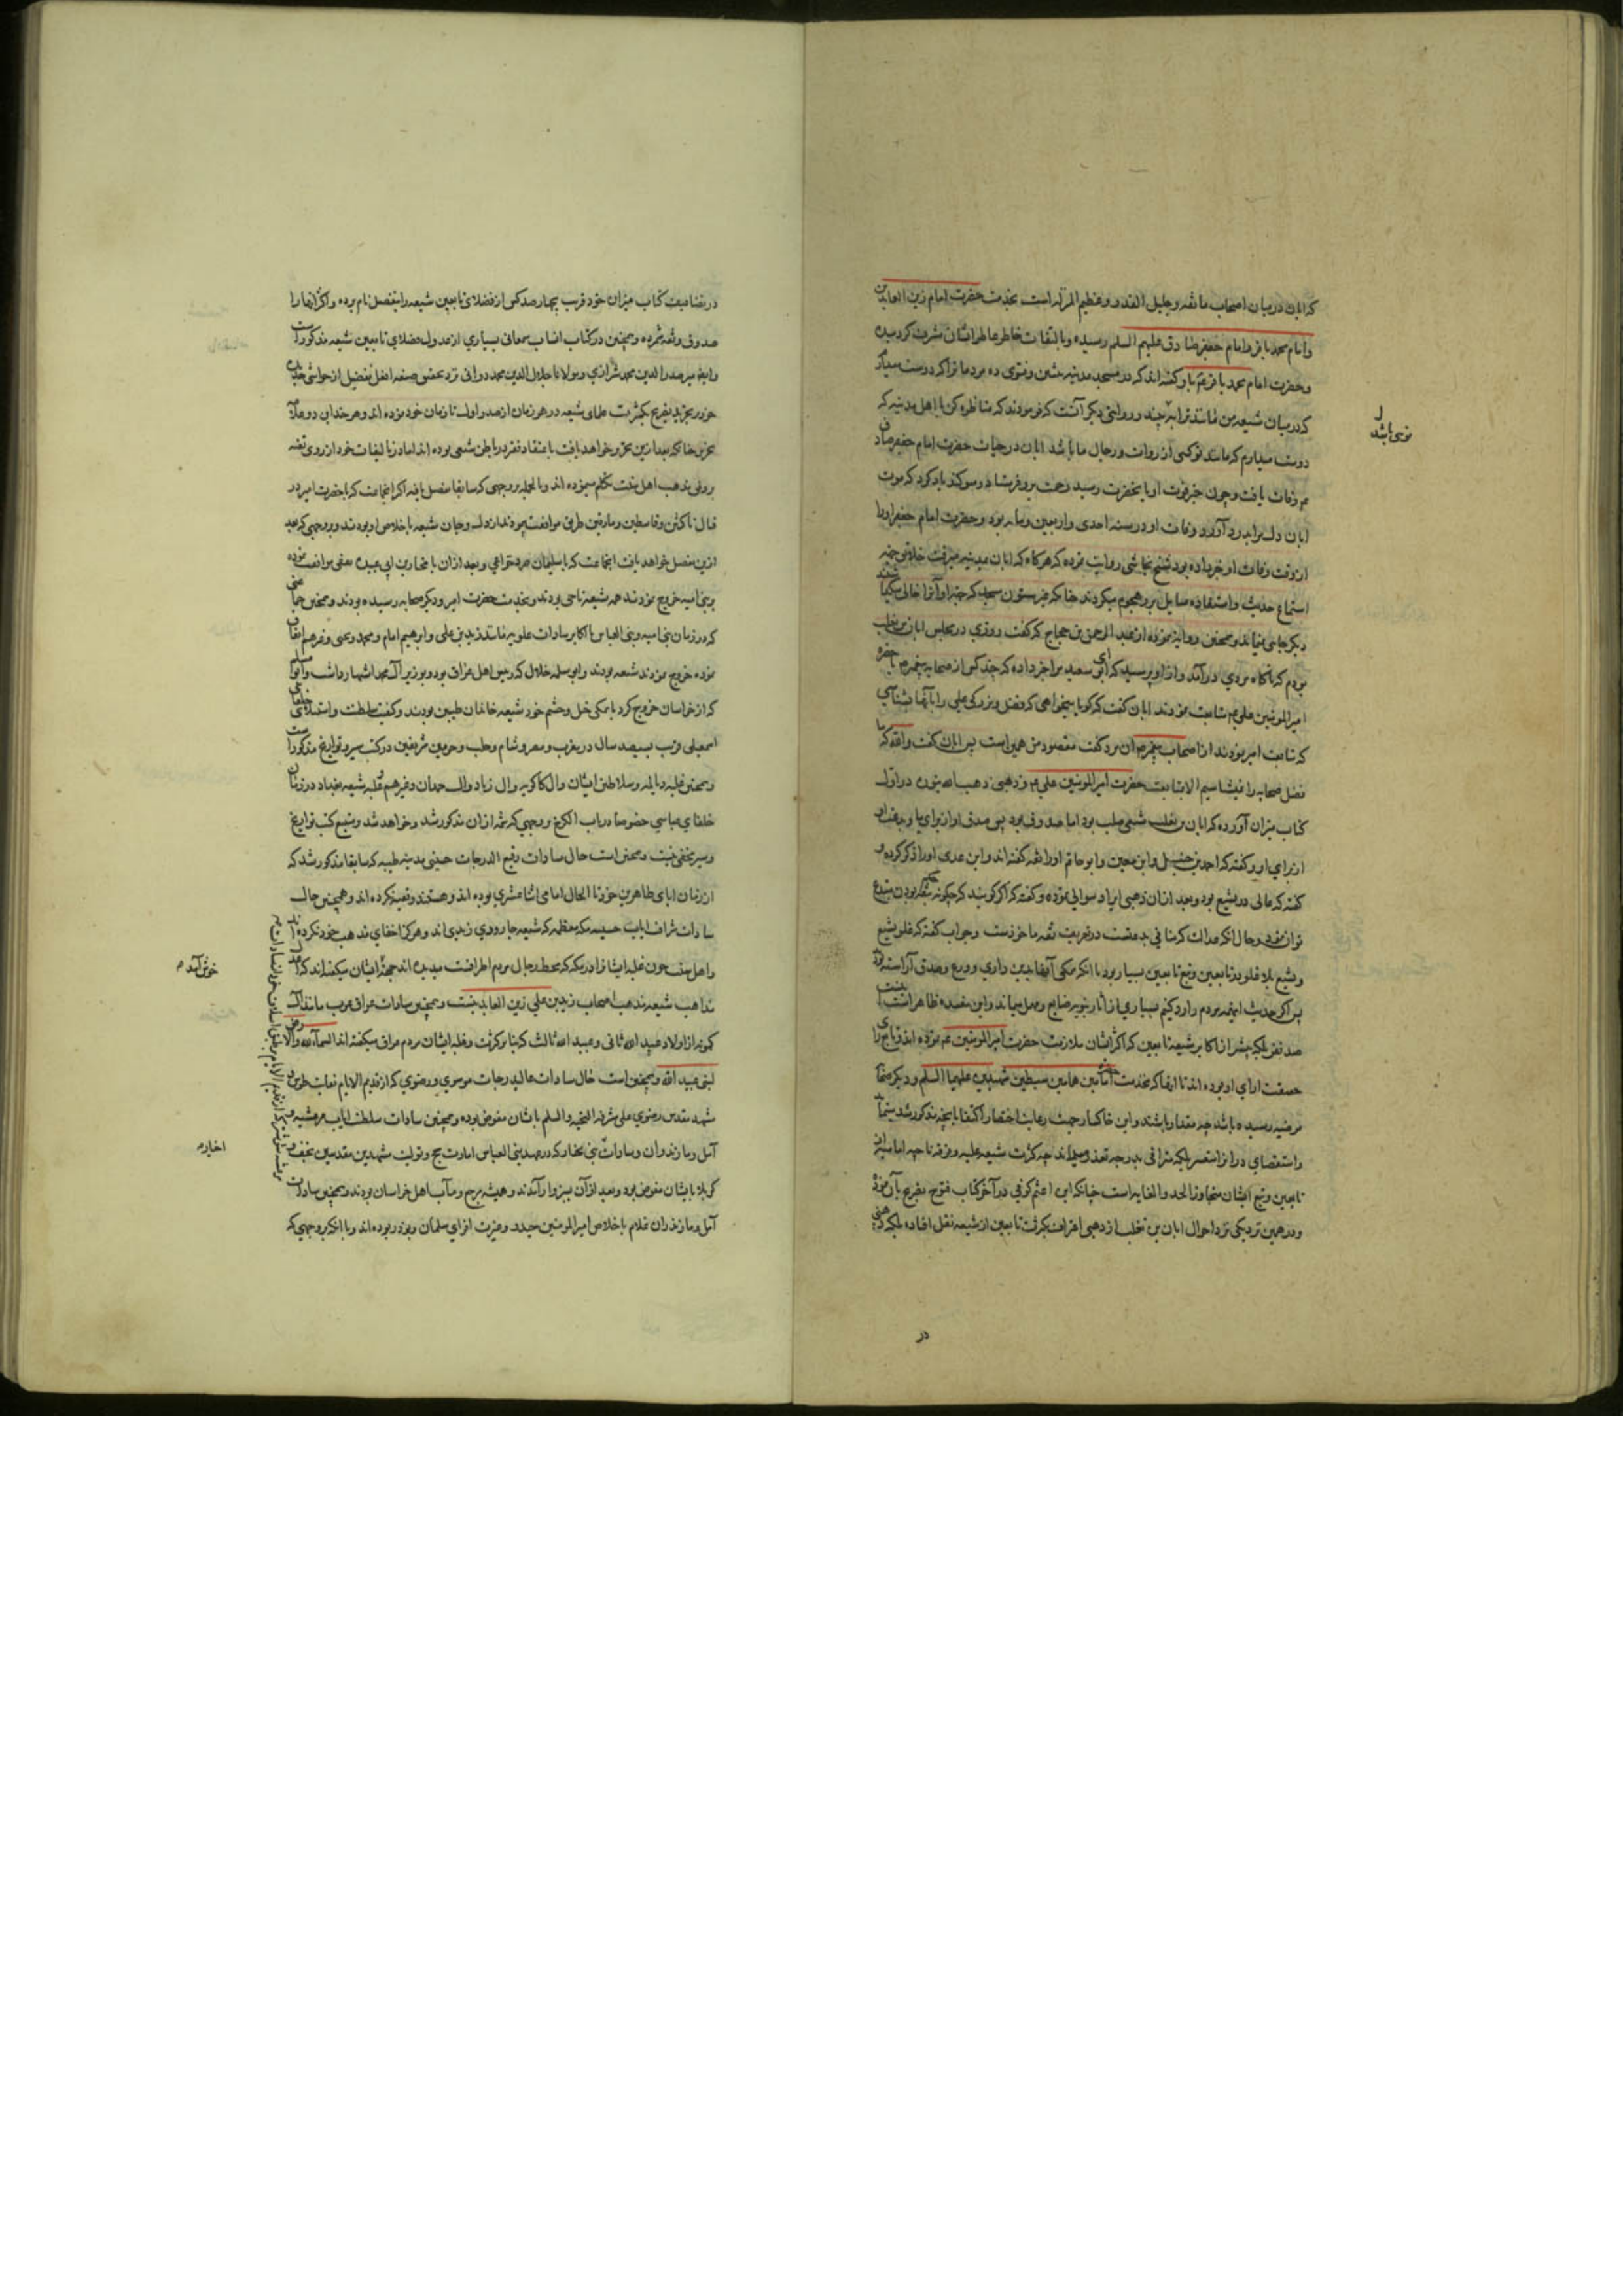 که ابان در میان اصحاب ما ثقه و جلیل القدر و عظیم المنزله است بخدمت حضرت امام زین العابدین
و امام محمد باقر و امام جعفر صادق علیهم السلم رسیده و بالتفات خاطر عاطر ایشان مشرف کردیده
و حضرت امام محمد باقر ع با و کفته اند که در مسجد مدینه بنشین و فتوی ده مردم را که دوست میدارم
که در میان شیعه من مانند ترا به بینند و روایتی دیکر آنست که فرمودند که مناظره کن با اهل مدینه که
دوست میدارم که مانند تو کسی از روات و رجال ما باشد ابان در حیات حضرت امام جعفر صادق
ع وفات یافت و چون خبر فوت او بانحضرت رسید رحمت برو فرستاد و سوکند یاد کرد که موت
ابان دل مرا بدرد آورد و وفات او در سنه احدی و اربعین و مایه بود و حضرت امام جعفر او را
از وقت وفات او خبر داده بود شیخ نجاشی روایت نموده که هرکاه که ابان بمدینه میرفت خلایق جهه
استماع حدیث و استفاده مسایل برو هجوم میکردند چنانکه غیر ستون مسجد که جهه او آنرا خالی
دیکر جای نمیماند و همچنین روایة نموده از عبد الرحمن بن حجاج که کفت روزی در مجلس ابان بن تغلب
بودم که ناکاه مردی درآمد و از او پرسید که ای ابو سعید مرا خبر ده که چند کس از صحابه پیغمبر ص با حضرة
امیر المومنین علی ع متابعت نمودند ابان کفت که کویا میخواهی که فضل و بزرکی علی را بآنها بشناسی
که متابعت امیر نمودند از اصحاب پیغمبر ص آن مرد کفت مقصود من همین است پس ابان کفت والله که ما
فضل صحابه را نمیشناسیم الا بمتابعت حضرت امیر المومنین علی ع و ذهبی ذهب الله بنوره در اول
کتاب میزان آورده که ابان بن تغلب شیعی صلب بود اما صدوق بود پس صدق او از برای ما و بدعت او
از برای او و کفته که احمد بن حنبل و ابن معین و ابو حاتم او را ثقه کفته اند و ابن عدی او را ذکر کرده و
کفته که غالی در تشیع بود و بعد از آن ذهبی ایراد سوالی نموده و کفته که اکر کویند که چکونه حکم بثقه بودن مبتدع
توان نمود و حال آنکه عدالت که منافی بدعتست در تعریف ثقه ماخوذست و جواب کفته که غلو تشیع
و تشیع بلا غلو در تابعین و تبع تابعین بسیار بود با آنکه همکی آنها بدین داری و ورع و صدق آراسته بودند
پس اکر حدیث اینهمه مردم را رد کنیم بسیاری از آثار نبویه ضایع و مهمل میماند و این مفسده ظاهراست
صد نفر بلکه بیشتر از اکابر شیعه تابعین که اکثر ایشان ملازمت حضرت امیر المومنین ع نموده اند و تابع رای
حقیقت ارای او بوده اند تا آنها که بخدمت امامین همامین سبطین شهیدین علیهما السلم و دیکر
مرضیه رسیده باشد چه مقدار باشند و این خاکسار جهت رعایت اختصار اکتفا بآنچه مذکور شد نمود
و استقصای در آن متعسر بلکه ترقی بدرجه تعذر میماند چه کثرت شیعه علیه و فرقه ناجیه امامیه از
تابعین و تبع ایشان متجاوز الحد و الغایه است چنانکه ابن اعثم کوفی در آخر کتاب فتوح تصریح بآن نموده
و در همین نزدیکی نزد احوال ابان بن تغلب از ذهبی اعتراف بکثرت تابعین از شیعه نقل افتاد بلکه ذهبی
در
در تضاعیف کتاب میزان خود قریب بچهارصد کس از فضلای تابعین شیعه را بتفصیل نام برده و اکثر آنها را
صدوق و ثقه شمرده و همچنین در کتاب انساب سمعانی بسیاری از عدول و فضلای تابعین شیعه مذکورست
و ایضا میر صدر الدین محمد شیرازی و مولانا جلال الدین محمد دوانی نزد تحقیق صیغه افعل تفضیل از حواشی
خود بر تجرید تصریح بکثرت علمای شیعه در هر زمان از صدر اول تا زمان خود نموده اند و هر چند آن دو علامه
نحریر چنانکه بعد ازین تحریر خواهد یافت باعتقاد فقیر در باطن شیعی بوده اند اما در تالیفات خود از روی تقیه
بر وفق مذهب اهل سنت تکلم مینموده اند و بالجمله بروجهی که سابقا تفصیل یافته اکثر انجماعت که با حضرت امیر در
قتال ناکثین و قاسطین و مارقین طریق موافقت پیمودند از دل و جان شیعه با خلاص او بودند و بروجهی که بعد
ازین تفصیل خواهد یافت انجماعت که با سلیمان صرد خزاعی و بعد ازان با مختار بن ابی عبیده ثقفی موافقت نموده
بر بنی امیه خروج نمودند همه شیعه ناجی بودند و بخدمت حضرت امیر و دیکر صحابه رسیده بودند و همچنین جمعی
که در زمان بنی امیه و بنی العباس با اکابر سادات علویه مانند زید بن علی و ابرهیم امام و محمد و یحیی و غیرهم اتفاق
نموده خروج نمودند شیعه بودند و ابو سلمه خلال که رییس اهل عراق بود و بوزیر آل محمد اشتهار داشت و ابو مسلم
که از خراسان خروج کرد با همکی خیل و حشم خود شیعه خاندان طیبین بودند و کیفیت سلطنت و استیلای خلفای
اسمعیلی قریب بسیصد سال در مغرب و مصر و شام و حلب و حرمین شریفین در کتب سیر و تواریخ مذکورست
و همچنین غلبه دیالمه و سلاطین ایشان و ال کاکویه و ال زیاد و ال حمدان و غیرهم و غلبه شیعه بغداد در زمان
خلفای عباسی خصوصا در باب الکرخ بروجهی که شمه ازان مذکور شد و خواهد شد و متتبع کتب تواریخ
و سیر مخفی نیست و همچنین است حال سادات رفیع الدرجات حسینی مدینه طیبه که سابقا مذکور شد که
از زمان ابای طاهرین خود تا الحال امامی اثنا عشری بوده اند و هستند و تقیه نکرده اند و همچنین حال
سادات شرافت ایاب حسینیه مکه معظمه که شیعه جارودی زیدی اند و هرکز اخفای مذهب خود نکرده اند
و اهل سنت چون غلبه ایشانرا در مکه که محط رجال مردم اطرافست میدیده اند جهة ایشان میکفته اند که اعدل
مذاهب شیعه مذهب اصحاب زید بن علی زین العابدینست و همچنین سادات عراق عرب مانند آل
کمونه از اولاد عبید الله ثانی و عبید الله ثالث که بنابر کثرت و غلبه ایشان مردم عراق میکفته اند السماء لله والارض
لبنی عبید الله و همچنین است حال سادات عالیدرجات موسوی و رضوی که از قدیم الایام نقابت طوس و
مشهد مقدس رضوی علی مشرفه التحیه والسلم بایشان مفوض بوده و همچنین سادات سلطنت ایاب مرعشیه
آمل و مازندران و سادات بنی مختار که در عهد بنی العباس امارت حج و تولیت مشهدین مقدسین نجف و
کربلا بایشان مفوض بود و بعد ازآن بسبزوار آمدند و همیشه مرجع و مآب اهل خراسان بودند و همچنین سادات
آمل و مازندران غلام با خلاص امیر المومنین حیدر و غیرت افزای سلمان و بوذر بوده اند و با آنکه بروجهی که
خوش آمد م
اخیار م